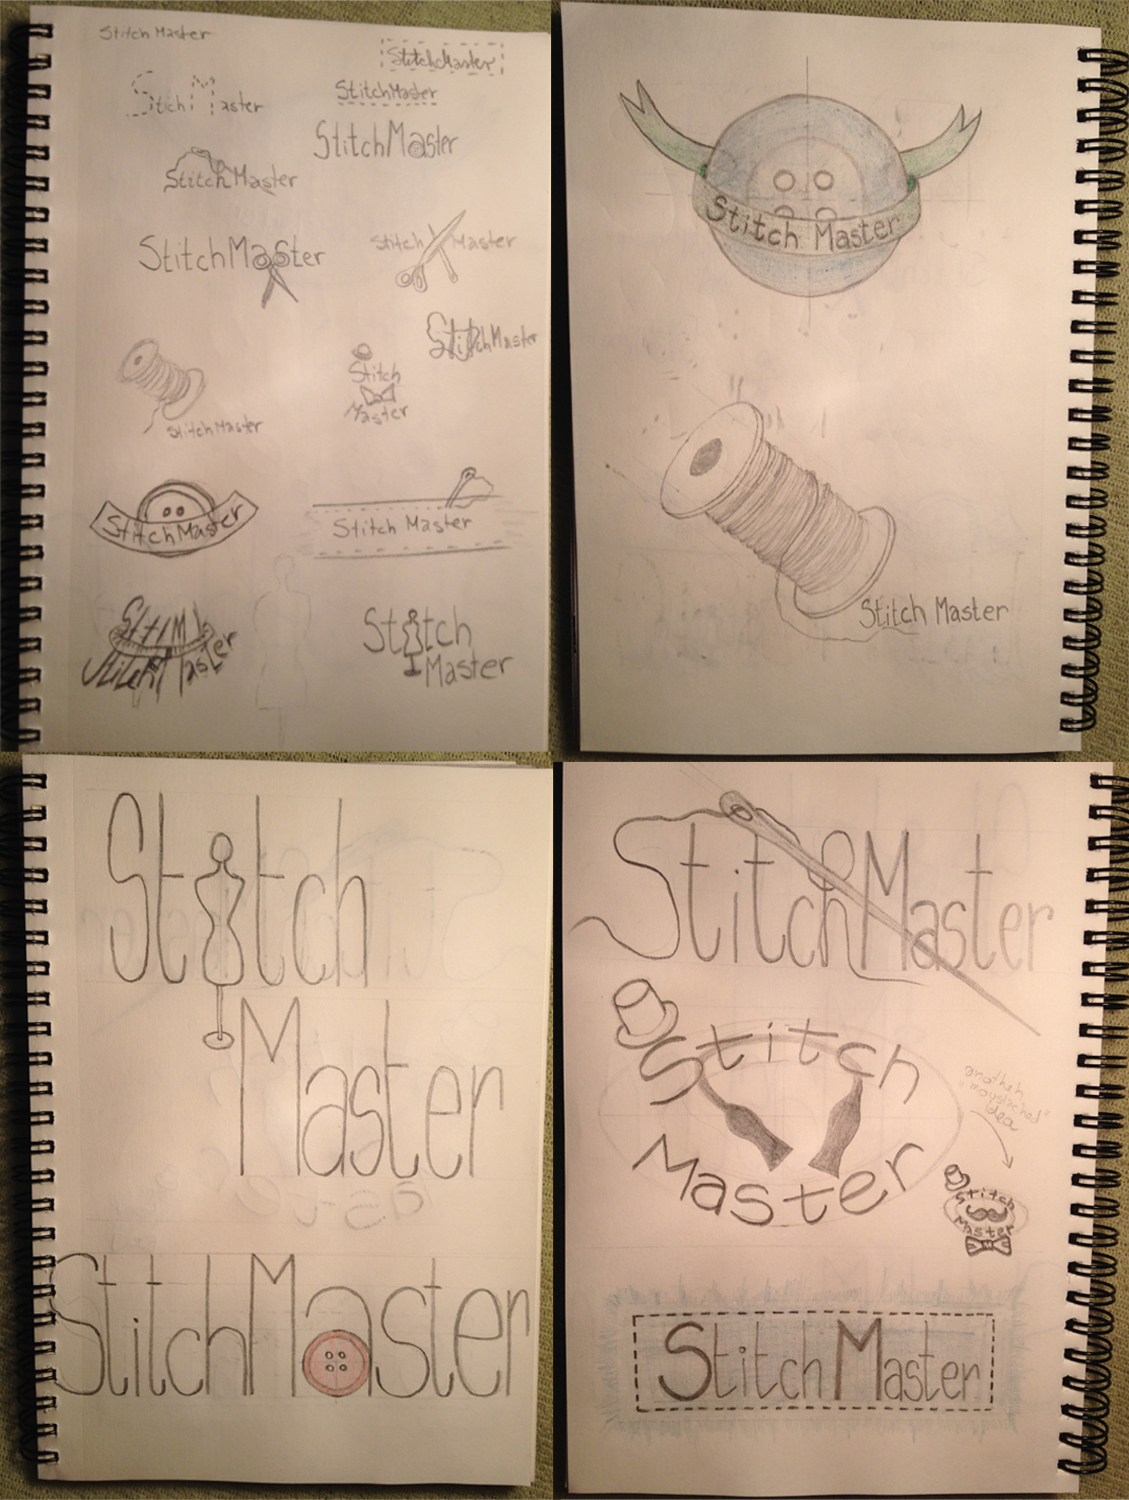 Stitch Master
StitchMaster
Stich Master
StitchMaster
StitchMaster
StitchMaster
StitchMaster
Stitch Master
StitchMaster
StitchMaster
Stitch
Master
StitchMaster
Stitch Master
Stitch
Master
Stitch Master
Stitch Master
Stitch
Master
StitchMaster
StitchMaster
Stitch
Master
another
"moustached"
idea
Stitch
Master
Stitch Master